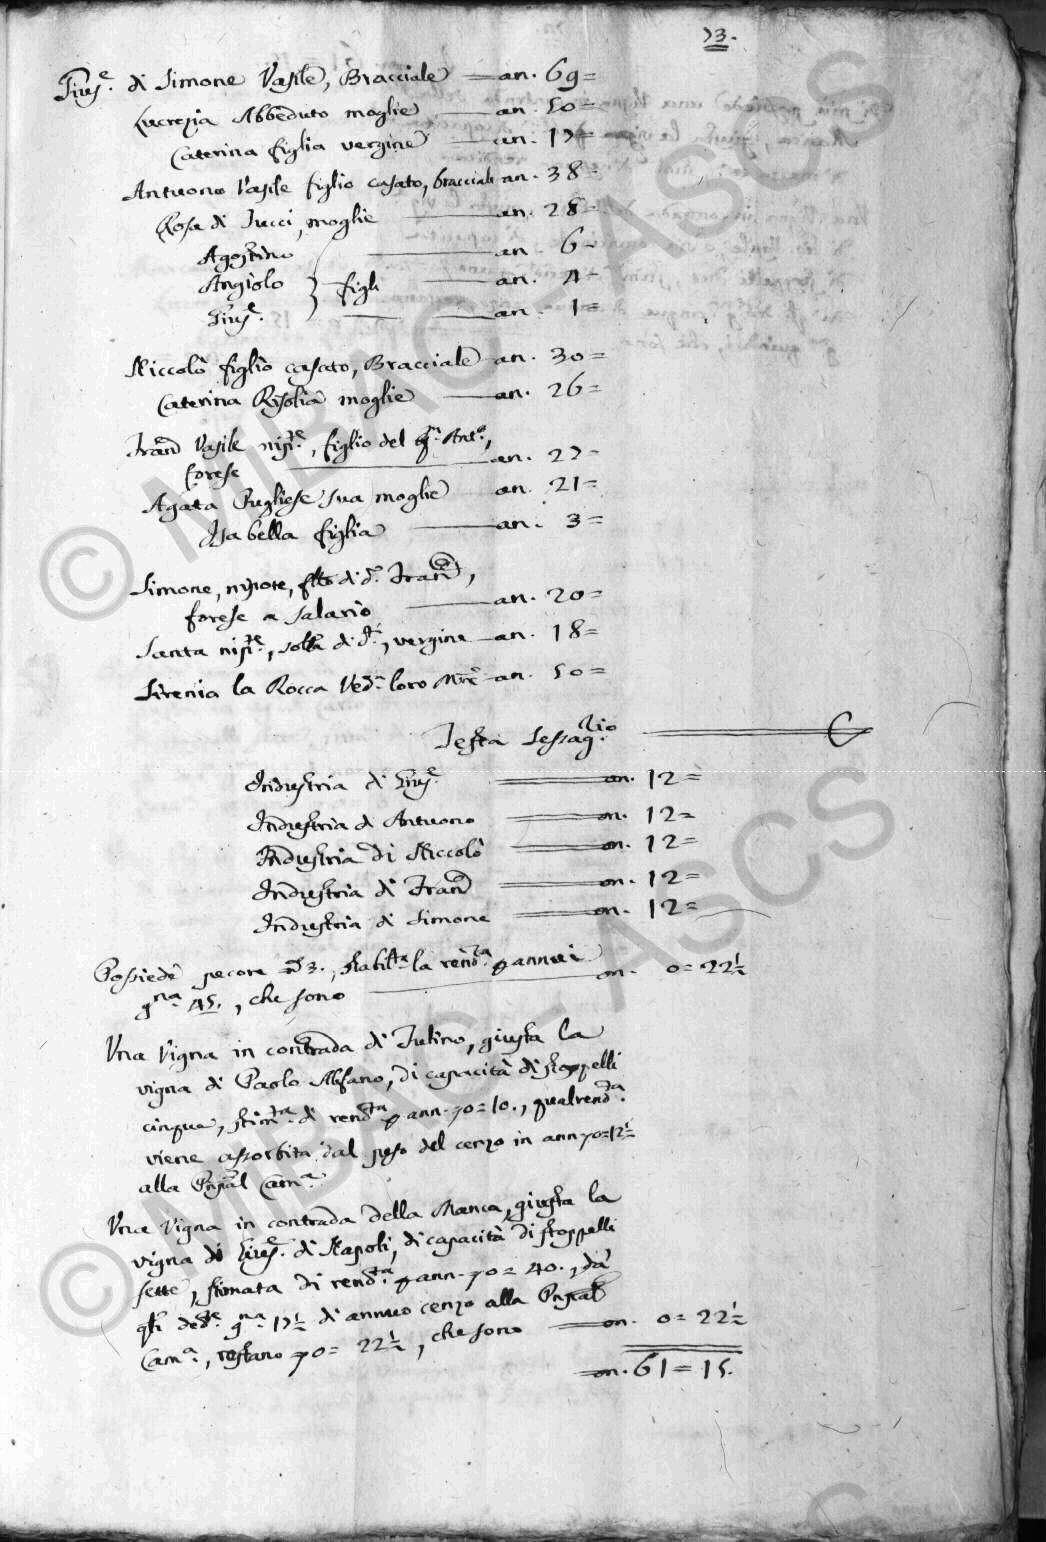 73.
Gius.e di Simone Vasile, Bracciale an. 69=
Lucrezia Abbenduto moglie an. 50=
Caterina figlia vergine an. 17=
Antuono Vasile figlio casato, bracciale an. 38=
Rosa di Tucci, moglie an. 28=
Agostino an. 6=
Angiolo } figli an. 4=
Gius.e an. 1=
Niccolò figlio casato, Bracciale an. 30=
Caterina Risolia moglie an. 26=
Fran.co Vasile nip.te, figlio del qm. Ant.o,
forese an. 27=
Agata Pugliese sua moglie an. 21=
Isabella figlia an. 3=
Simone, nipote, f.llo di d.o Fran.co,
forese a salario an. 20=
Santa nip.te, sorella di d.i, vergine an. 18=
Sirenia la Rocca Ved.a loro M.re an. 50=
Testa Sessag.rio
Industria di Gius.e on. 12=
Industria di Antuono on. 12=
Industria di Niccolò on. 12=
Industria di Fran.co on. 12=
Industria di Simone on. 12=
Possiede pecore n.3., stabilta la rend.ta p annui
g.na 45., che sono on. 0=22½
Una Vigna in contrada di Tulino, giusta la
vigna di Paolo Alfano, di capacità di stoppelli
cinque, stim.ta di rend.ta p ann. 0=10., qual rend.ta
viene assorbita dal peso del cenzo in ann. 0=12½
alla Pnpal Cam.a
Una Vigna in contrada della Manca, giusta la
vigna di Gius.e di Napoli, di capacità di stoppelli
sette, stimata di rend.ta p ann. 0=40., da
qli ded.te g.na 17½ di annuo cenzo alla Pnpal
Cam.a, restano 0=22½, che sono on. 0=22½
on. 61=15.
© MIBAC - ASCS
© MIBAC - ASCS